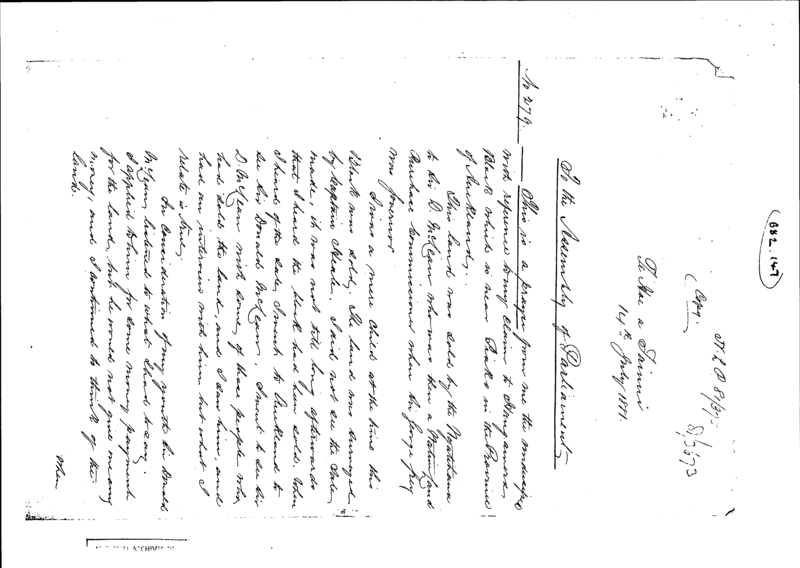 BB2. 147
N.L.P. 81/
81/3673
(Copy.
Te Ake a Tairinui
14th July 1881.
To the Assembly of Parliament,
No 279. This is a prayer from me the undersigned
with reference to my claim to
Block which is near Piako in the Province
of Auckland,
This land was sold by the
to Sir D. McLean who was then a Native Land
Purchase Commissioner when Sir George Grey
was Governor
I was a mere child at the time this
Block was sold, The land was surveyed
by Captain Heale. I did not see the Sale
made, it was not till long afterwards
that I heard the block had been sold. When
I heard of the Sale, I went to Auckland to
see Sir Donald McLean. I went to see Sir
D. McLean with some of those people who
had sold the land, and I saw him, and
had an interview with him but what I
relate is true,
In consideration of my youth Sir Donald
McLean, listened to what I had to say.
I applied to him for some money payment
for the land, but he would not give me any
money, and I continued to think of the
land.
When